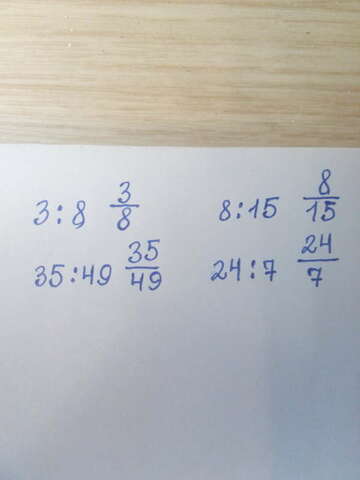 3:8 3/8 8:15 8/15
35:49 35/49 24:7 24/7